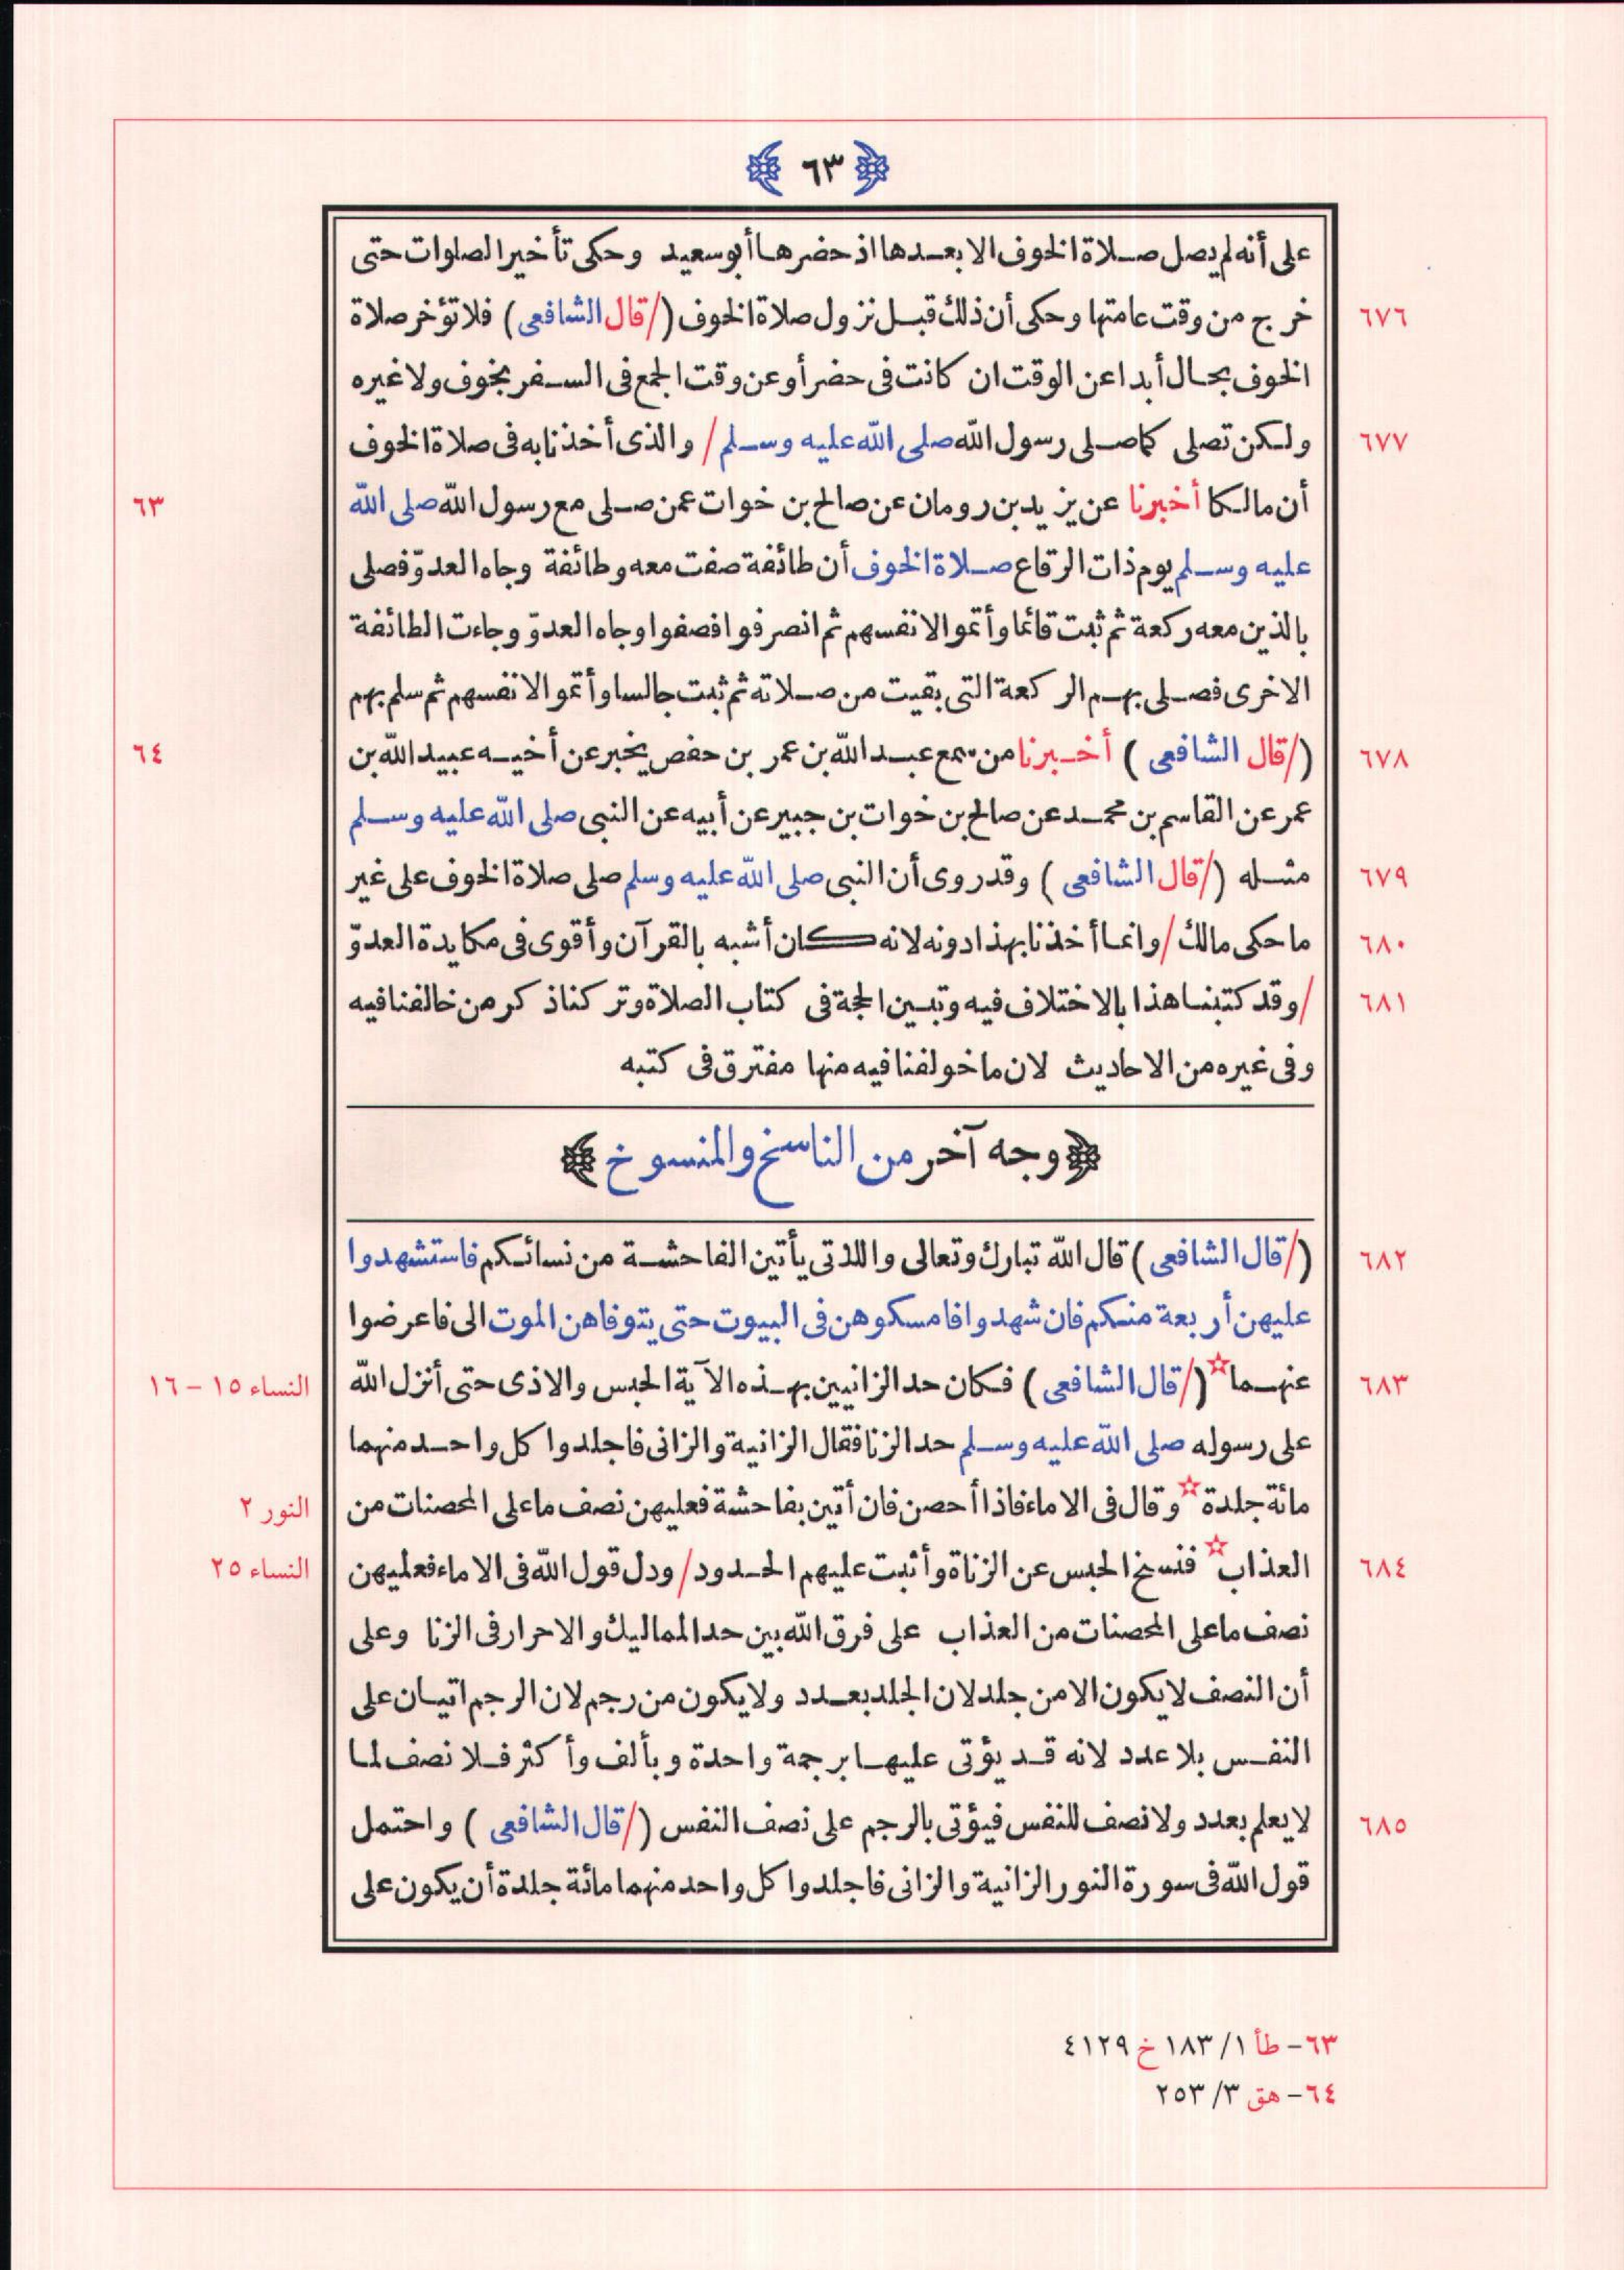 ﴿ ٦٣ ﴾
على أنه لم يصل صلاة الخوف الا بعدها اذ حضرها أبو سعيد وحكى تأخير الصلوات حتى
٦٧٦ خرج من وقت عامتها وحكى أن ذلك قبل نزول صلاة الخوف (/قال الشافعى) فلا تؤخر صلاة
الخوف بحال أبدا عن الوقت ان كانت فى حضر أو عن وقت الجمع فى السفر بخوف ولا غيره
٦٧٧ ولكن تصلى كما صلى رسول الله صلى الله عليه وسلم / والذى أخذنا به فى صلاة الخوف
أن مالكا أخبرنا عن يزيد بن رومان عن صالح بن خوات عمن صلى مع رسول الله صلى الله ٦٣
عليه وسلم يوم ذات الرقاع صلاة الخوف أن طائفة صفت معه وطائفة وجاه العدوّ فصلى
بالذين معه ركعة ثم ثبت قائما وأتموا لانفسهم ثم انصرفوا فصفوا وجاه العدوّ وجاءت الطائفة
الاخرى فصلى بهم الركعة التى بقيت من صلاته ثم ثبت جالسا وأتموا لانفسهم ثم سلم بهم
٦٧٨ (/قال الشافعى) أخبرنا من سمع عبد الله بن عمر بن حفص يخبر عن أخيه عبيد الله بن ٦٤
عمر عن القاسم بن محمد عن صالح بن خوات بن جبير عن أبيه عن النبى صلى الله عليه وسلم
٦٧٩ مثله (/قال الشافعى) وقد روى أن النبى صلى الله عليه وسلم صلى صلاة الخوف على غير
٦٨٠ ما حكى مالك / وانما أخذنا بهذا دونه لانه كان أشبه بالقرآن وأقوى فى مكايدة العدوّ
٦٨١ / وقد كتبنا هذا بالاختلاف فيه وتبيين الحجة فى كتاب الصلاة وتركنا ذكر من خالفنا فيه
وفى غيره من الاحاديث لان ما خولفنا فيه منها مفترق فى كتبه
﴿وجه آخر من الناسخ والمنسوخ﴾
٦٨٢ (/قال الشافعى) قال الله تبارك وتعالى واللاتى يأتين الفاحشة من نسائكم فاستشهدوا
عليهن أربعة منكم فان شهدوا فامسكوهن فى البيوت حتى يتوفاهن الموت الى فاعرضوا
٦٨٣ عنهما☆ (/قال الشافعى) فكان حد الزانيين بهذه الآية الحبس والاذى حتى أنزل الله النساء ١٥ – ١٦
على رسوله صلى الله عليه وسلم حد الزنا فقال الزانية والزانى فاجلدوا كل واحد منهما
مائة جلدة☆ وقال فى الاماء فاذا أحصن فان أتين بفاحشة فعليهن نصف ما على المحصنات من النور ٢
٦٨٤ العذاب☆ فنسخ الحبس عن الزناة وأثبت عليهم الحدود / ودل قول الله فى الاماء فعليهن النساء ٢٥
نصف ما على المحصنات من العذاب على فرق الله بين حد المماليك والاحرار فى الزنا وعلى
أن النصف لا يكون الا من جلد لان الجلد بعدد ولا يكون من رجم لان الرجم اتيان على
النفس بلا عدد لانه قد يؤتى عليها برجمة واحدة وبألف وأكثر فلا نصف لما
٦٨٥ لا يعلم بعدد ولا نصف للنفس فيؤتى بالرجم على نصف النفس (/قال الشافعى) واحتمل
قول الله فى سورة النور الزانية والزانى فاجلدوا كل واحد منهما مائة جلدة أن يكون على
٦٣- طأ ١/ ١٨٣ خ ٤١٢٩
٦٤- هق ٣/ ٢٥٣